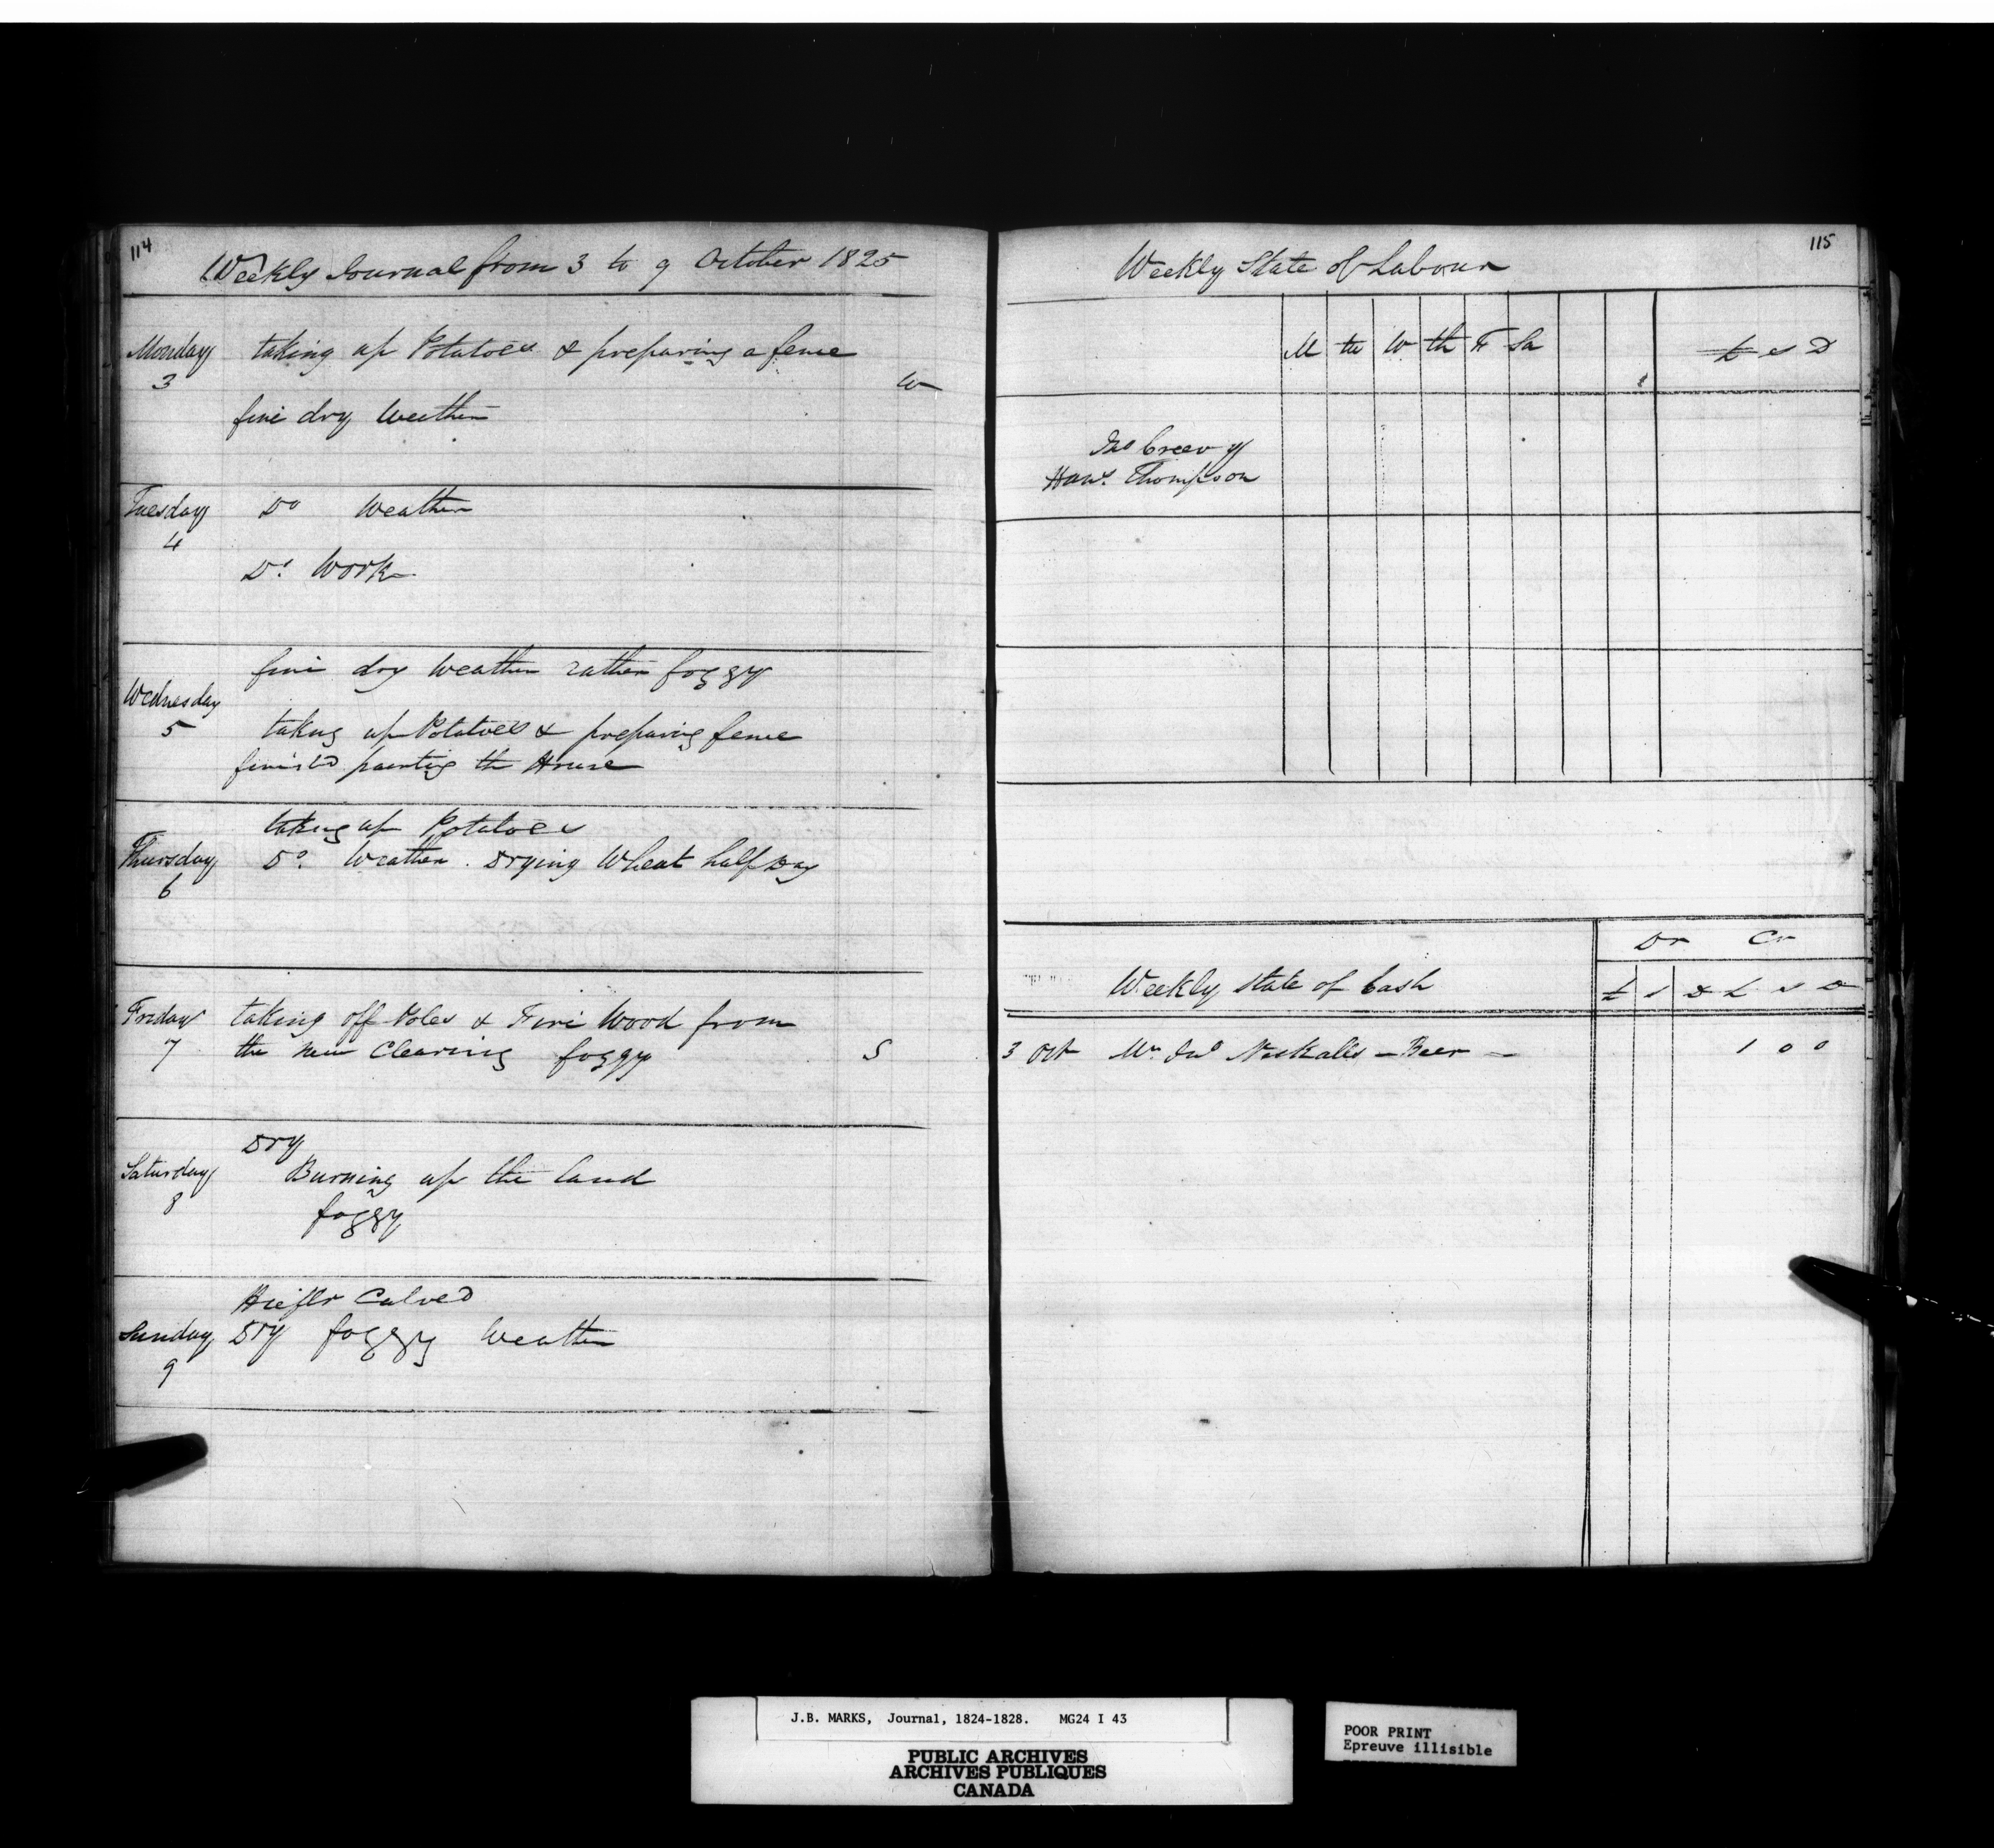 114
Weekly Journal from 3 to 9 October 1825
Monday taking up Potatoes & preparing a fence
3
W
fine dry Weather
Tuesday Do Weather
4
Do. Work
fine dry Weather rather foggy
Wednesday
5 taking up Potatoes & preparing fence
finish'd painting the House
taking up Potatoes
Thursday Do. Weather. Drying Wheat half Day
6
Friday taking off Poles & Fire Wood from
7 the new Clearing foggy S
Dry
Saturday Burning up the land
8
foggy
Hiefer Calved
Sunday Dry foggy Weather
9
115
Weekly State of Labour
M tu W th F Sa £ s D
Jno Creevy
Thompson
Dr Cr
Weekly State of Cash £ s D £ s D
3 Oct Mr. Jno - Beer - 1 0 0
J.B. MARKS, Journal, 1824-1828. MG24 I 43
PUBLIC ARCHIVES
ARCHIVES PUBLIQUES
CANADA
POOR PRINT
Epreuve illisible